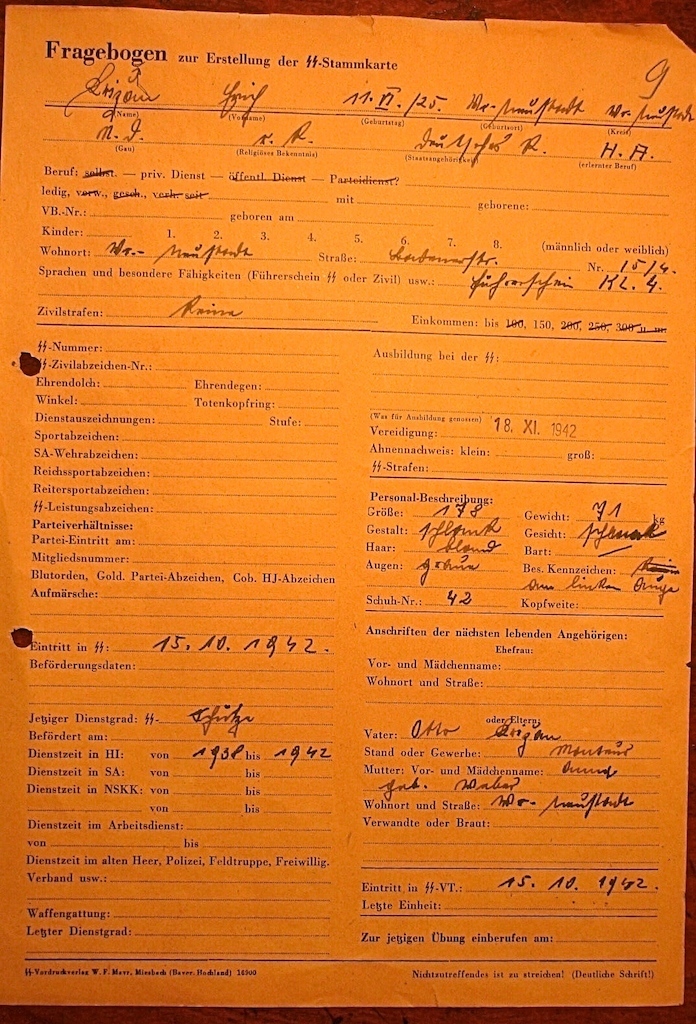 9
Fragebogen zur Erstellung der SS-Stammkarte
Erich 11. VI. /25. Wr.-Neustadt Wr.-Neustadt
(Name) (Vorname) (Geburtstag) (Geburtsort) (Kreis)
N. D. r. K. Deutsches R. H. A.
(Gau) (Religiöses Bekenntnis) (Staatsangehörigkeit) (erlernter Beruf)
Beruf: selbst. — priv. Dienst — öffentl. Dienst — Parteidienst?
ledig, verw., gesch., verh. seit mit geborene:
VB.-Nr.: geboren am
Kinder: 1. 2. 3. 4. 5. 6. 7. 8. (männlich oder weiblich)
Wohnort: Wr.- Neustadt Straße: Nr. 15/4.
Sprachen und besondere Fähigkeiten (Führerschein SS oder Zivil) usw.: Führerschein Kl. 4.
Zivilstrafen: Keine
Einkommen: bis 100, 150, 200, 250, 300 u. m.
SS-Nummer:
SS-Zivilabzeichen-Nr.:
Ehrendolch: Ehrendegen:
Winkel: Totenkopfring:
Dienstauszeichnungen: Stufe:
Sportabzeichen:
SA-Wehrabzeichen:
Reichssportabzeichen:
Reitersportabzeichen:
SS-Leistungsabzeichen:
Parteiverhältnisse:
Partei-Eintritt am:
Mitgliedsnummer:
Blutorden, Gold. Partei-Abzeichen, Cob. HJ-Abzeichen
Aufmärsche:
Eintritt in SS: 15. 10. 1942.
Beförderungsdaten:
Jetziger Dienstgrad: SS- Schütze
Befördert am:
Dienstzeit in HJ: von 1938 bis 1942
Dienstzeit in SA: von bis
Dienstzeit in NSKK: von bis
von bis
Dienstzeit im Arbeitsdienst:
von bis
Dienstzeit im alten Heer, Polizei, Feldtruppe, Freiwillig.
Verband usw.:
Waffengattung:
Letzter Dienstgrad:
Ausbildung bei der SS:
(Was für Ausbildung genossen)
Vereidigung: 18. XI. 1942
Ahnennachweis: klein: groß:
SS-Strafen:
Personal-Beschreibung:
Größe: 178 Gewicht: 71 kg
Gestalt: schlank Gesicht: schmal
Haar: blond Bart: —
Augen: graue Bes. Kennzeichen:
am linken Auge
Schuh-Nr.: 42 Kopfweite:
Anschriften der nächsten lebenden Angehörigen:
Ehefrau:
Vor- und Mädchenname:
Wohnort und Straße:
oder Eltern:
Vater: Otto
Stand oder Gewerbe: Monteur
Mutter: Vor- und Mädchenname: Anna
geb. Weber
Wohnort und Straße: Wr.- Neustadt
Verwandte oder Braut:
Eintritt in SS-VT.: 15. 10. 1942.
Letzte Einheit:
Zur jetzigen Übung einberufen am:
SS-Vordruckverlag W. F. Mayr, Miesbach (Bayer. Hochland) 16900 Nichtzutreffendes ist zu streichen! (Deutliche Schrift!)